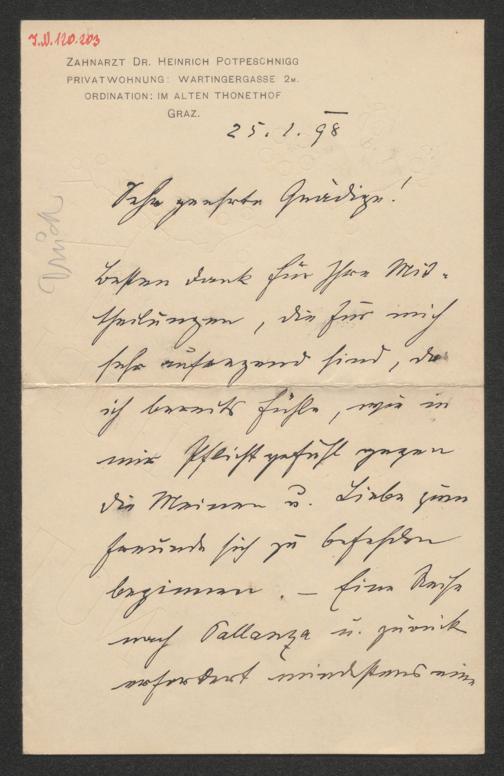 I.N. 120.203
ZAHNARZT DR. HEINRICH POTPESCHNIGG
PRIVATWOHNUNG: WARTINGERGASSE 2M.
ORDINATION: IM ALTEN THONETHOF
GRAZ.
25. 1. 98
Sehr geehrte Gnädige!
Druck
Besten Dank für Ihre Mit-
theilungen, die für mich
sehr aufregend sind, da
ich bereits fühle, wie in
mir Pflichtgefühl gegen
die Meinen u. Liebe zum
Freunde sich zu befehden
beginnen. – Eine Reise
nach Pallanza u. zurück
erfordert mindestens eine